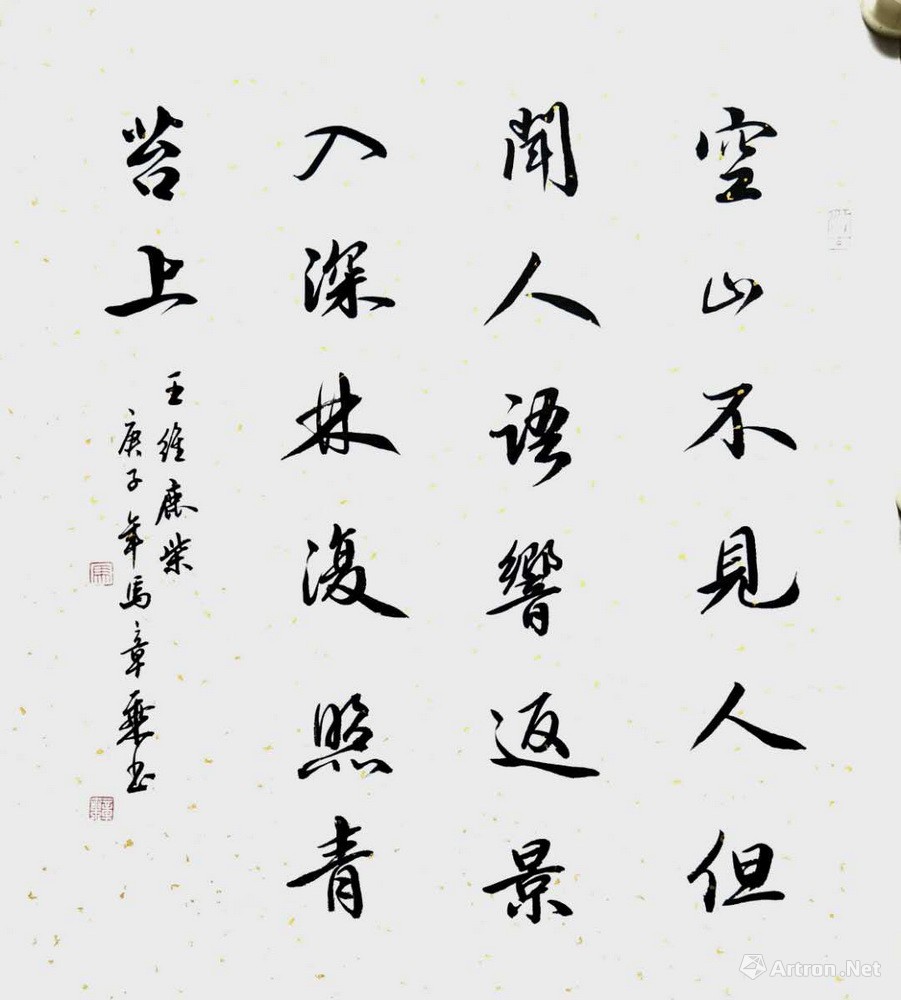 空山不見人但
聞人語響返景
入深林復照青
苔上
王維鹿柴
庚子年馬章乘書
Artron.Net